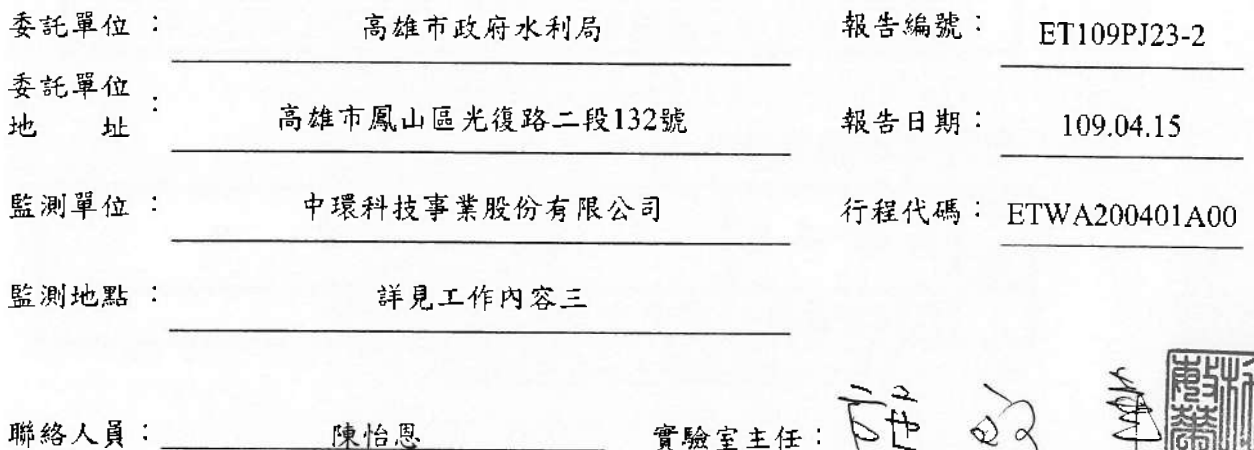 委託單位：高雄市政府水利局 報告編號：ET109PJ23-2
委託單位地址：高雄市鳳山區光復路二段132號 報告日期：109.04.15
監測單位：中環科技事業股份有限公司 行程代碼：ETWA200401A00
監測地點：詳見工作內容三
聯絡人員：陳怡恩 實驗室主任：